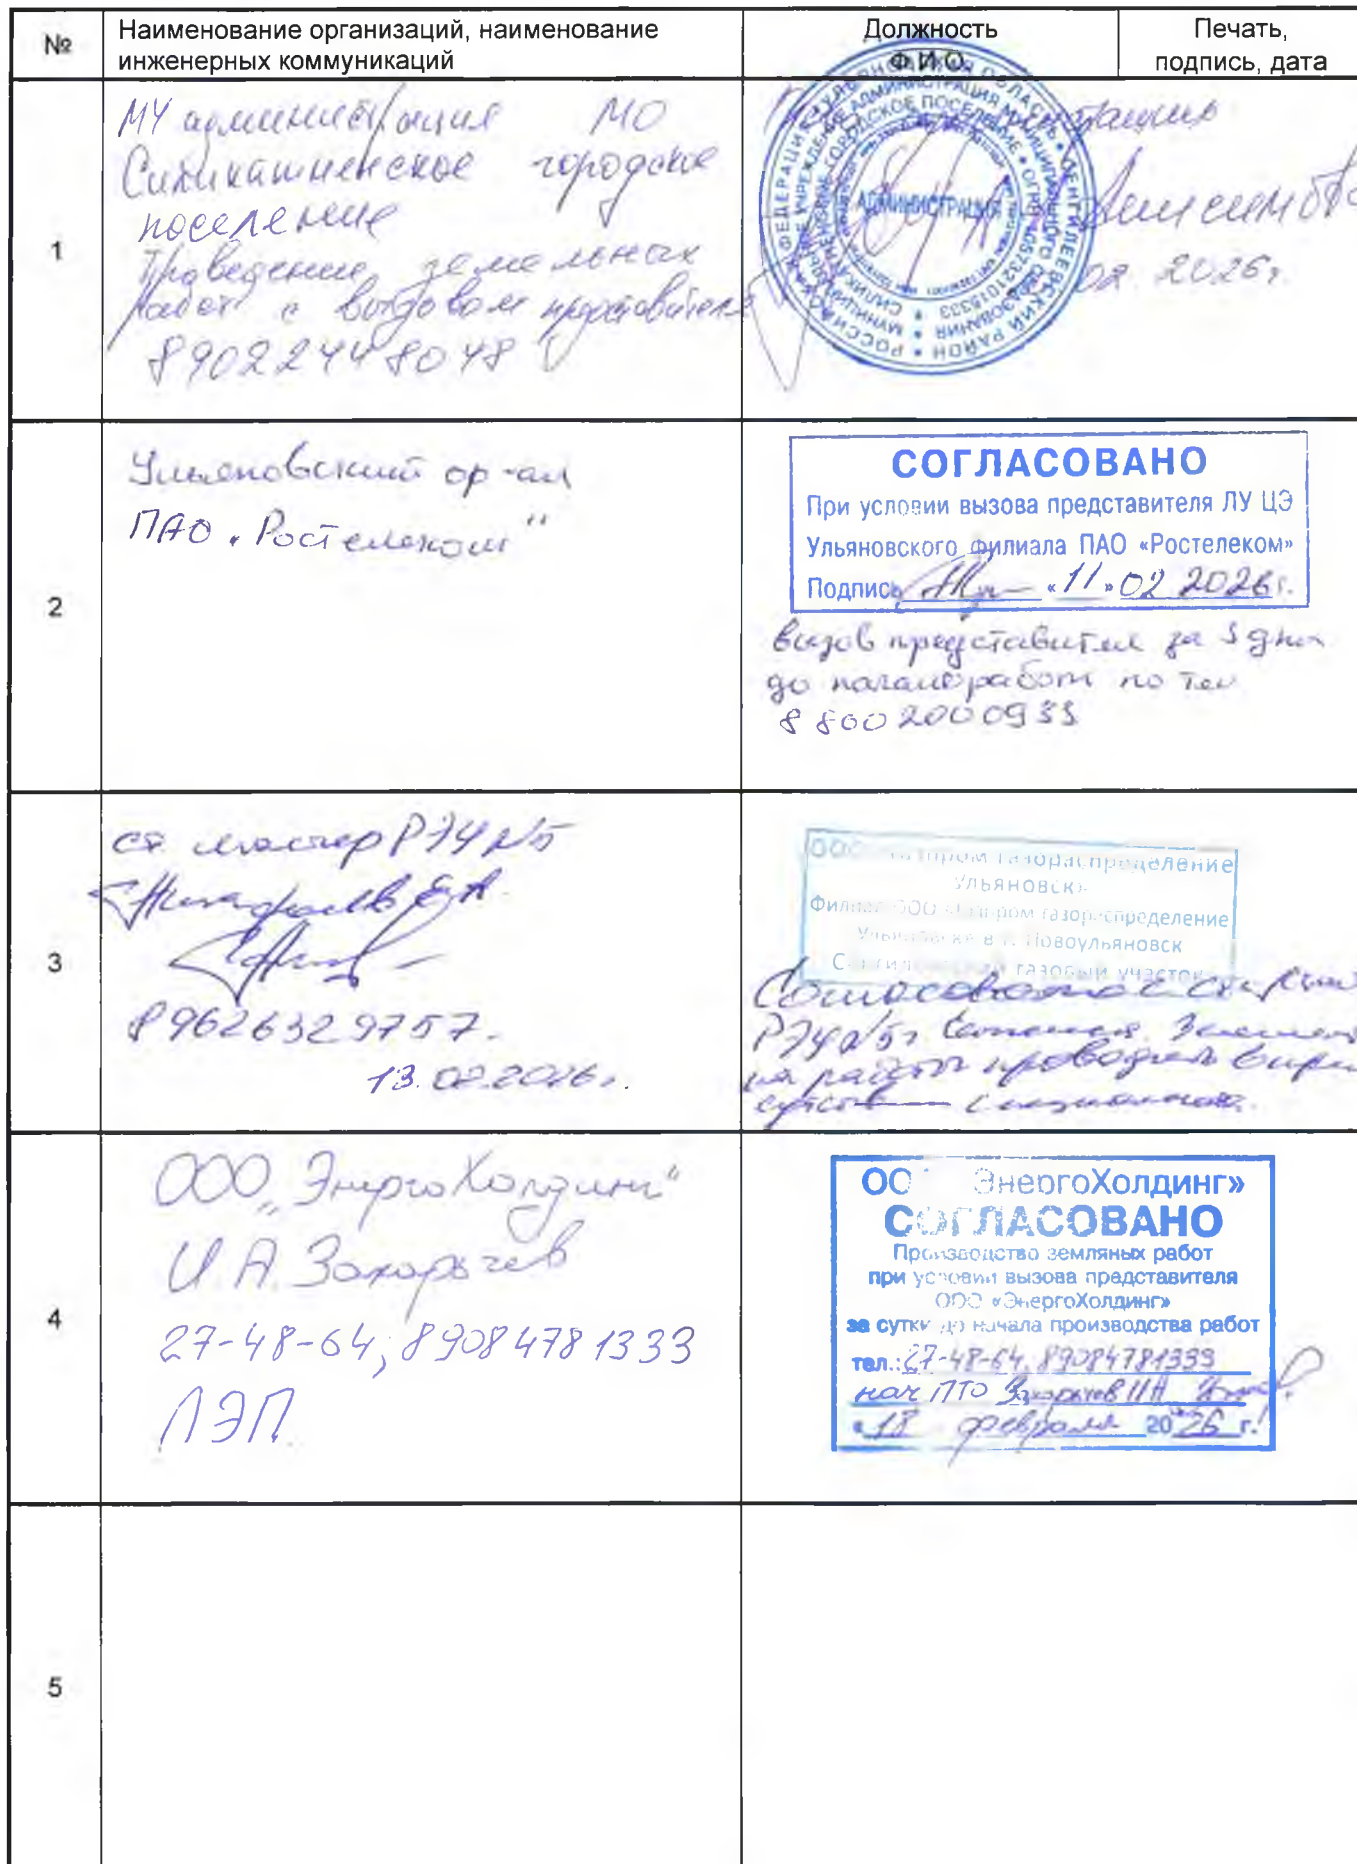 №
Наименование организаций, наименование
инженерных коммуникаций
Должность
Ф.И.О.
Печать,
подпись, дата
1
МУ администрация МО
Силикатненское городское
поселение
Проведение земельных
работ с вызовом представителя
89022448048
АДМИНИСТРАЦИЯ
Анисимова
02. 2026г.
2
Ульяновский ф-ал
ПАО "Ростелеком"
СОГЛАСОВАНО
При условии вызова представителя ЛУ ЦЭ
Ульяновского филиала ПАО «Ростелеком»
Подпись «11» 02 2026г.
вызов представителя за 3 дня
до начала работ по тел
8 800 2000933
3
ст. мастер РЭУ №5
89626329757.
13.02.2026г.
ООО газораспределение
Ульяновск»
Филиал ООО «Газпром газораспределение
Ульяновск» в г. Новоульяновск
газовый участок
Согласовано с
РЭУ №5
работы проводить в при
4
ООО "ЭнергоХолдинг"
И.А. Захарычев
27-48-64, 89084781333
ЛЭП.
ООО «ЭнергоХолдинг»
СОГЛАСОВАНО
Производство земляных работ
при условии вызова представителя
ООО «ЭнергоХолдинг»
за сутки до начала производства работ
тел.: 27-48-64, 89084781333
нач ПТО Захарычев ИА
«18 февраля 2026 г.
5